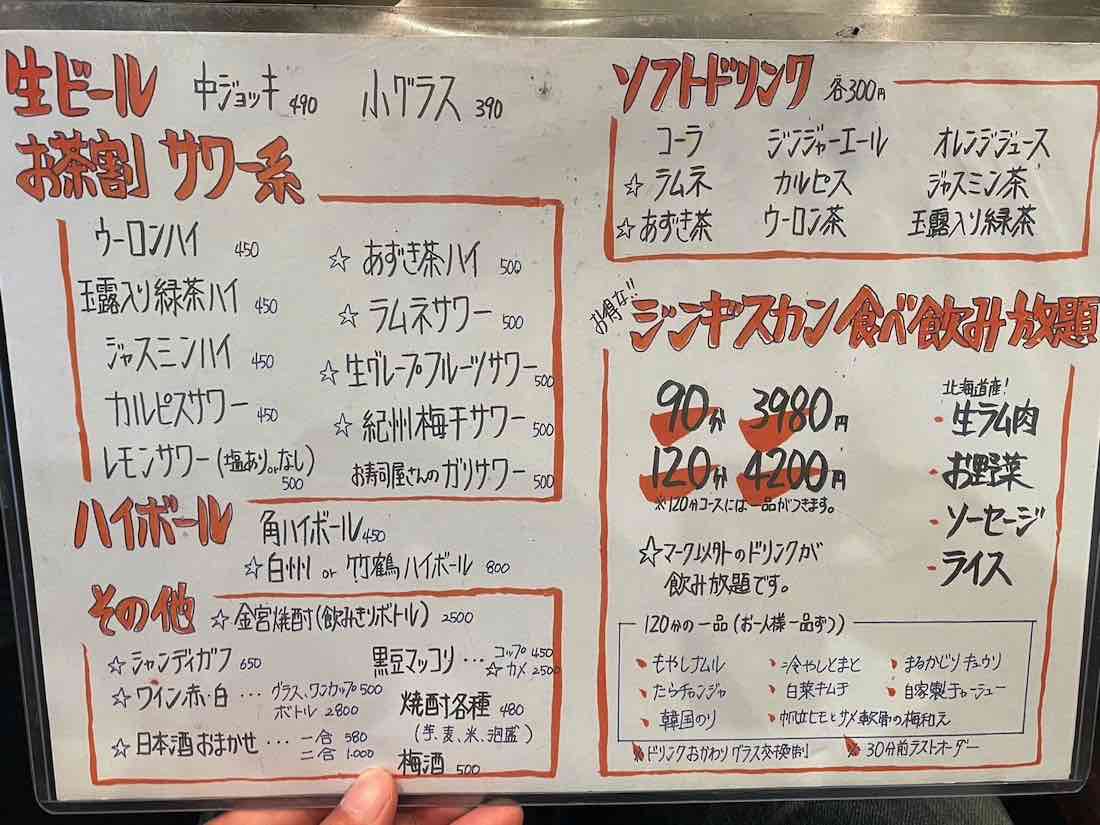 生ビール 中ジョッキ 490 小グラス 390
お茶割 サワー系
ウーロンハイ 450
玉露入り緑茶ハイ 450
ジャスミンハイ 450
カルピスサワー 450
レモンサワー(塩ありorなし) 500
☆あずき茶ハイ 500
☆ラムネサワー 500
☆生グレープフルーツサワー 500
☆紀州梅干サワー 500
お寿司屋さんのガリサワー 500
ハイボール 角ハイボール 450
☆白州 or 竹鶴ハイボール 800
その他 ☆金宮焼酎(飲みきりボトル) 2500
☆シャンディガフ 650
☆ワイン赤・白…グラス、ワンカップ500
ボトル 2800
☆日本酒おまかせ…一合 580
二合 1,000
黒豆マッコリ…コップ 450
☆カメ 2500
焼酎各種 480
(芋、麦、米、泡盛)
梅酒 500
ソフトドリンク 各300円
コーラ ジンジャーエール オレンジジュース
☆ラムネ カルピス ジャスミン茶
☆あずき茶 ウーロン茶 玉露入り緑茶
お得な!!
ジンギスカン食べ飲み放題
90分 3980円
120分 4200円
※120分コースには一品がつきます。
☆マーク以外のドリンクが
飲み放題です。
北海道産!
・生ラム肉
・お野菜
・ソーセージ
・ライス
120分の一品(お一人様一品ずつ)
・もやしナムル ・冷やしとまと ・まるかじりキュウリ
・たらチャンジャ ・白菜キムチ ・自家製チャーシュー
・韓国のり ・帆立ヒモとサメ軟骨の梅和え
※ドリンクおかわりグラス交換制 ※30分前ラストオーダー